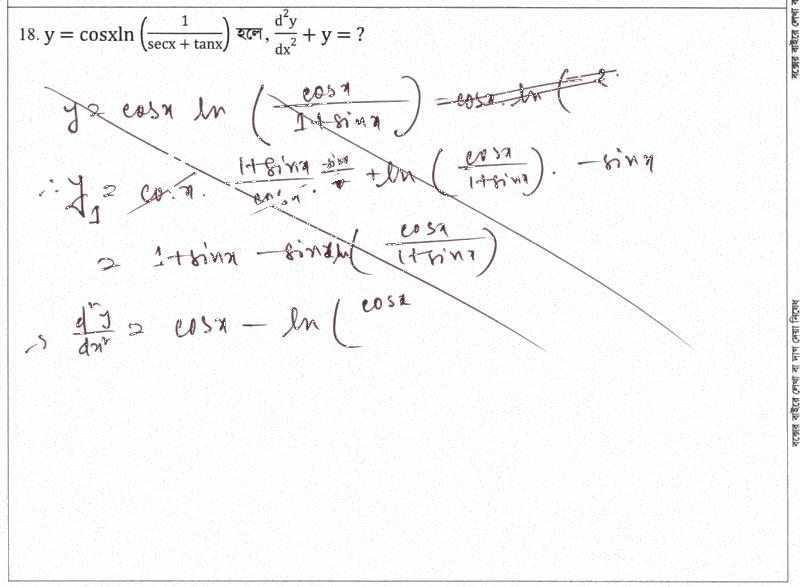 18. y = cosxln (1/(secx + tanx)) হলে, d²y/dx² + y = ?
y = cosx ln (cosx/(1+sinx)) = cosx. ln (
∴ y₁ = cosx. (1+sinx)/cosx. + ln (cosx/(1+sinx)). -sinx
= 1+sinx - sinx ln (cosx/(1+sinx))
⇒ d²y/dx² = cosx - ln (cosx
বক্সের বাইরে লেখা বা দাগ দেয়া নিষেধ
বক্সের বাইরে লেখা ব